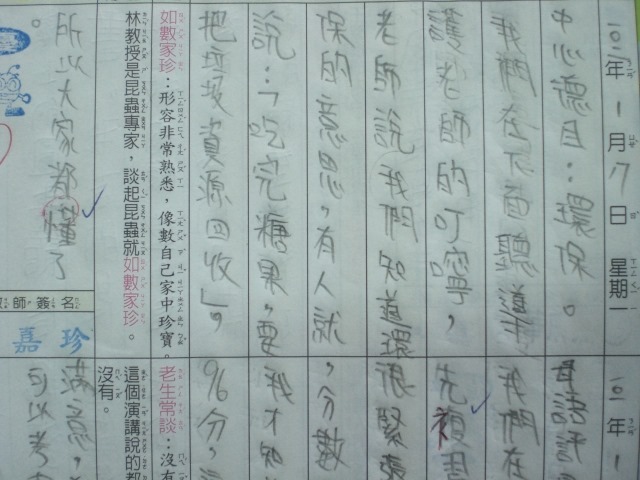 一○一年1月7日 星期一
中心德目：環保。
我們在下面聽導
護老師的叮嚀，
老師說我們知道環
保的意思，有人就
說：「吃完糖果，要
把垃圾資源回收」，
如數家珍：形容非常熟悉，像數自己家中珍寶。
林教授是昆蟲專家，談起昆蟲就如數家珍。
所以大家都懂了
師簽名
嘉珍
一○一年1
我們在
先複習
很緊張
，分數
我才知
96分，
老生常談：沒有
這個演講說的都
沒有。
滿意，
可以考